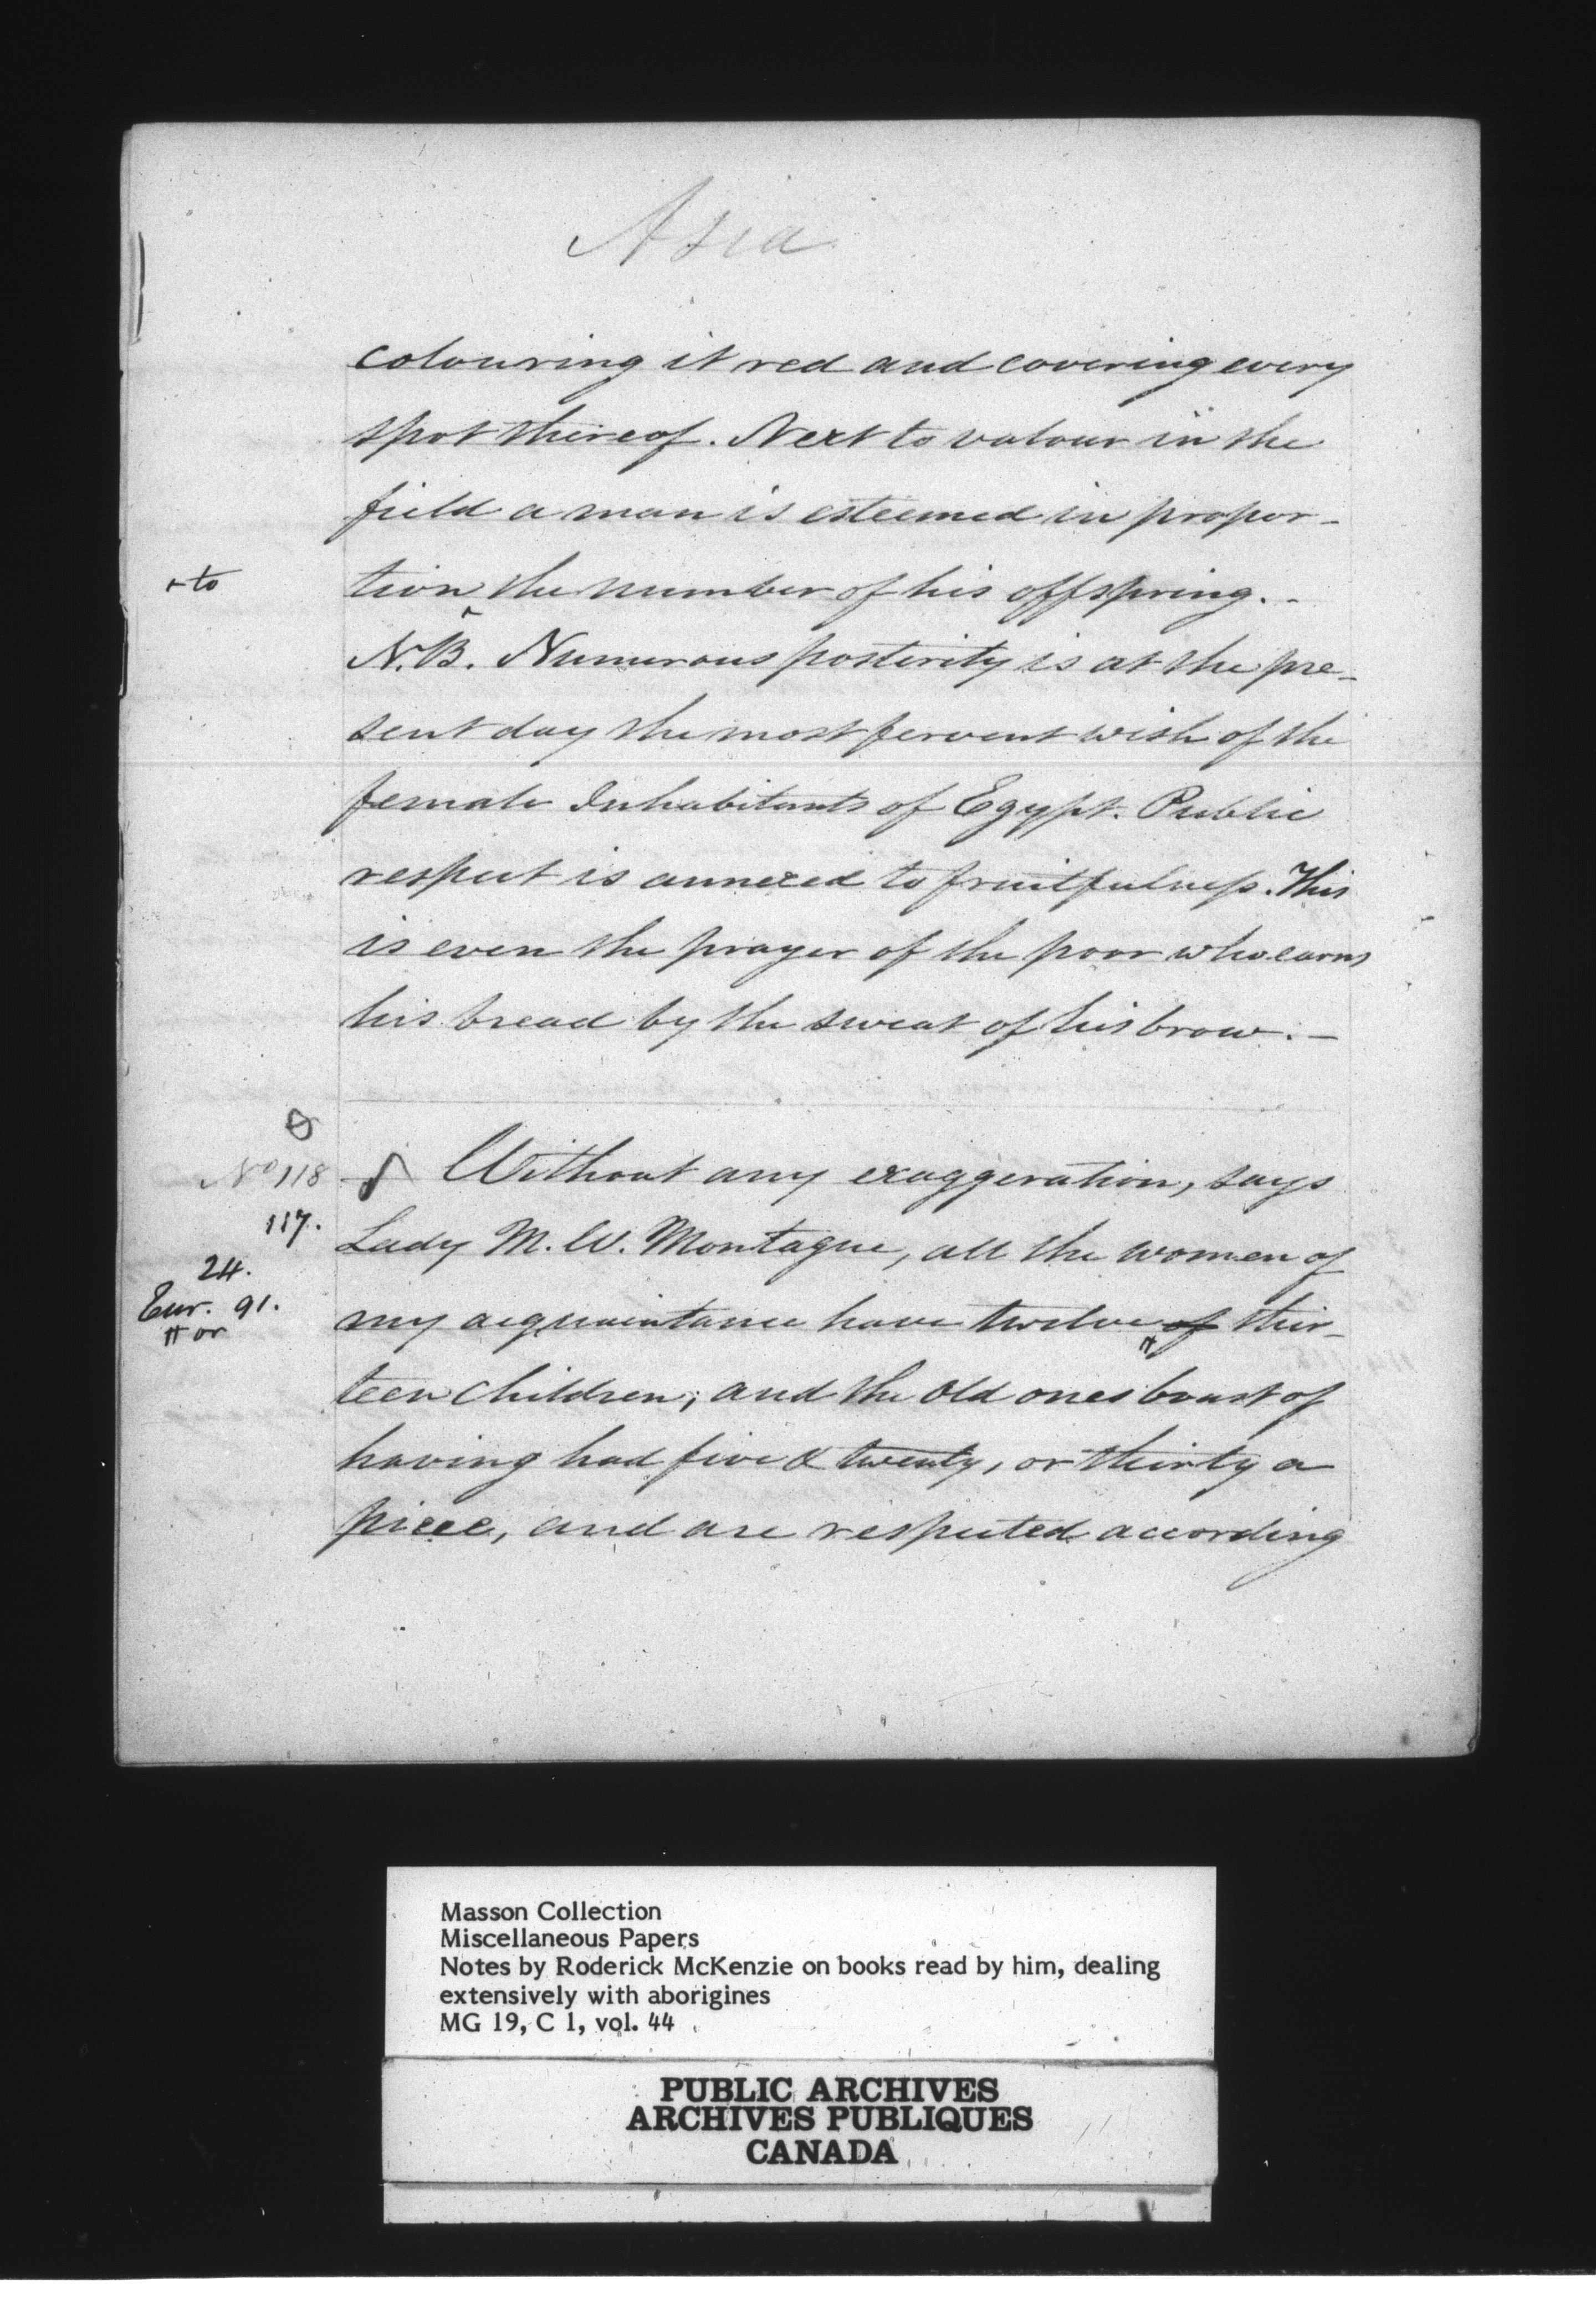 Asia
colouring it red and covering every
spot thereof. Next to valour in the
field a man is esteemed in propor-
+ to
tion the number of his offspring. -
N.B. Numerous posterity is at the pre-
sent day the most fervent wish of the
female Inhabitants of Egypt. Public
respect is annexed to fruitfulness. This
is even the prayer of the poor who earns
his bread by the sweat of his brow. -
No 118
Without any exaggeration, says
117.
Lady M. W. Montague, all the women of
24.
Eur. 91.
# or
my acquaintance have twelve of thir-
teen children; and the old ones boast of
having had five & twenty, or thirty a
piece, and are respected according
Masson Collection
Miscellaneous Papers
Notes by Roderick McKenzie on books read by him, dealing
extensively with aborigines
MG 19, C 1, vol. 44
PUBLIC ARCHIVES
ARCHIVES PUBLIQUES
CANADA